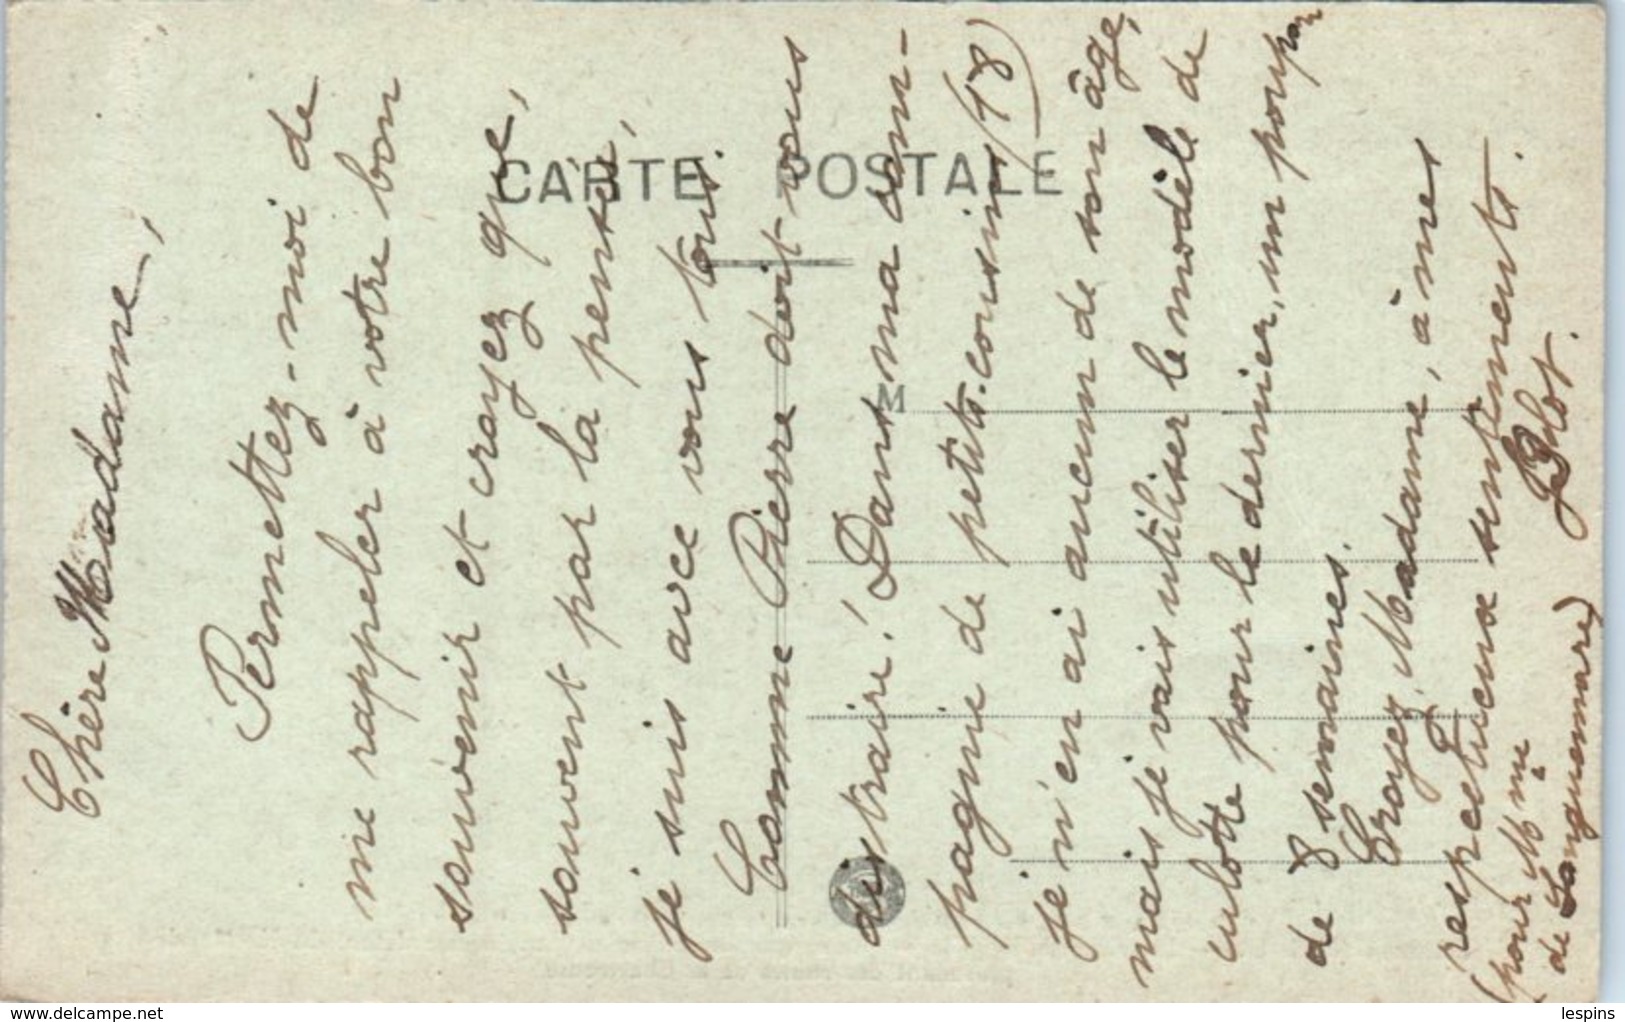 Chère Madame,
Permettez-moi de
me rappeler à votre bon
souvenir et croyez que,
souvent par la pensée,
je suis avec vous tous.
Comme Pierre doit vous
distraire! Dans ma com-
pagnie de petits-cousins (18)
je n'en ai aucun de son âge,
mais je vais utiliser le modèle de
culotte pour le dernier, un poupon
de 8 semaines.
Croyez, Madame, à mes
respectueux sentiments.
Blot.
(pour Mme
de Languemare)
CARTE POSTALE
M
delcampe.net
lespins